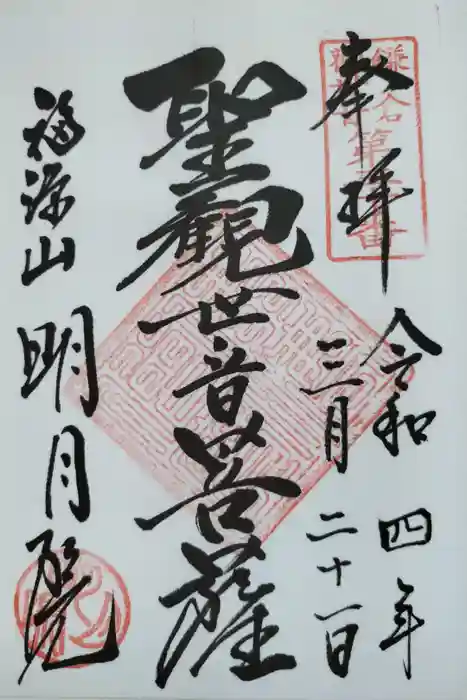 奉拝
令和四年
三月二十一日
聖観世音菩薩
福源山
明月院